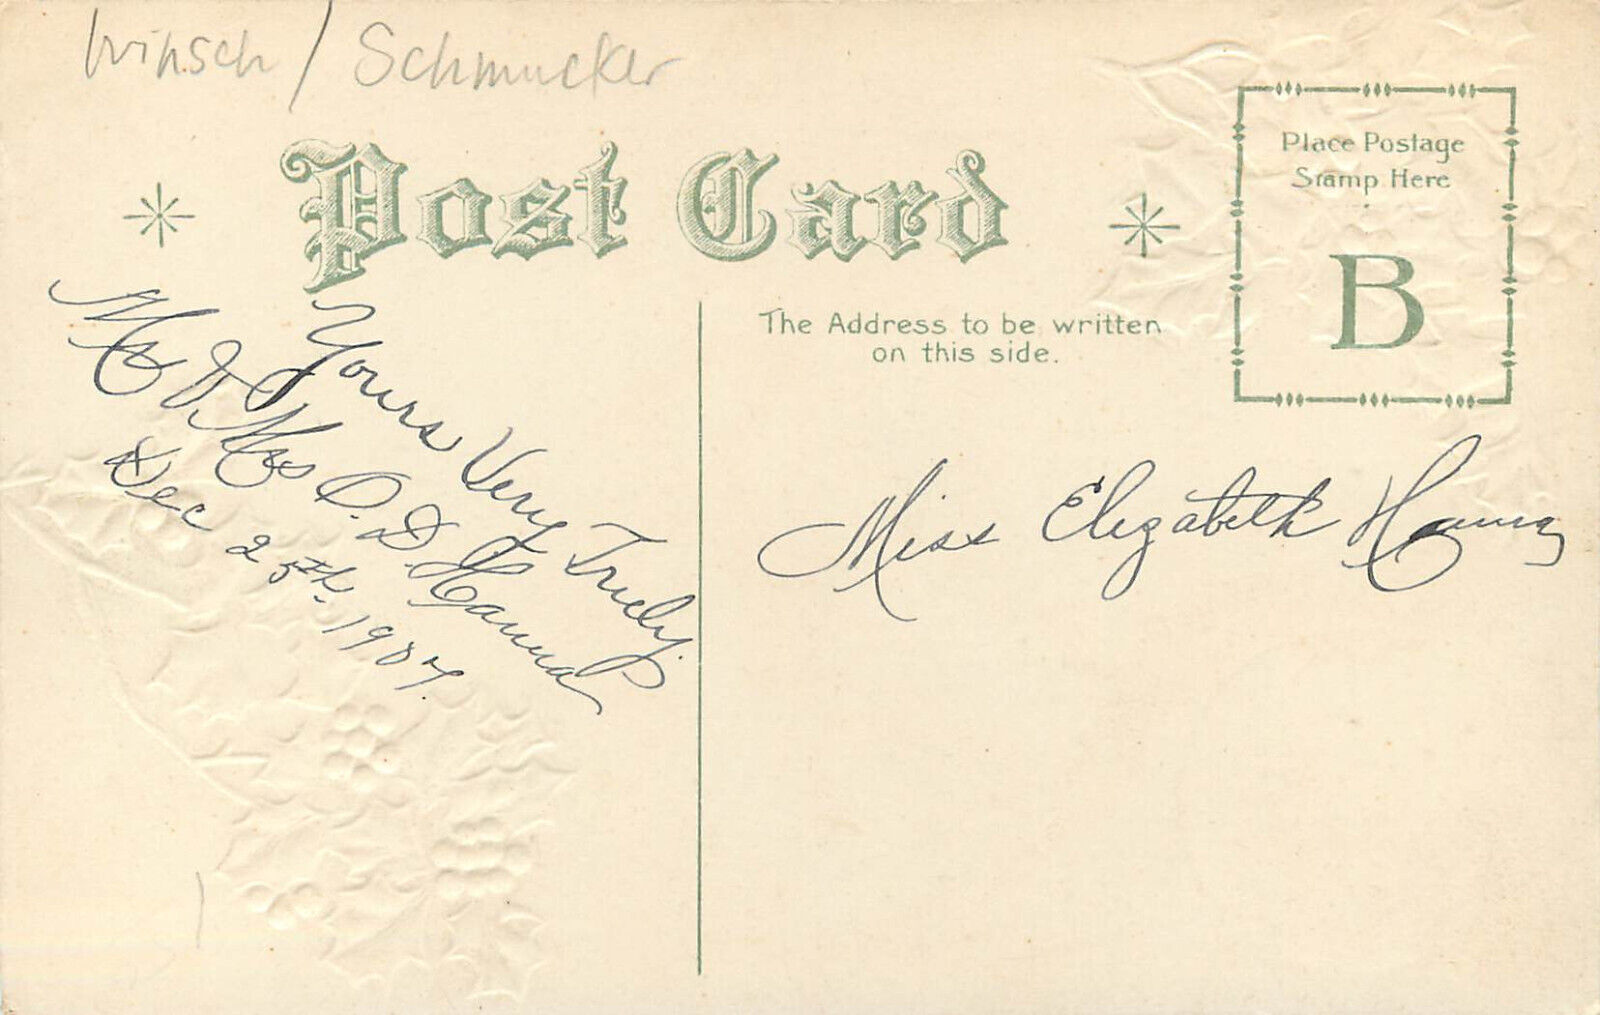 Winsch / Schmucker
Post Card
Place Postage
Stamp Here
B
The Address to be written
on this side.
Yours Very Truly.
Mr & Mrs D. D. Hanna
Dec 25th. 1907.
Miss Elizabeth